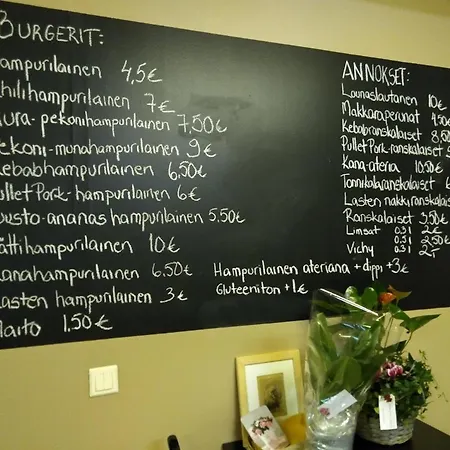 BURGERIT:
ampurilainen 4,5€
hilihampurilainen 7€
ura-pekonihampurilainen 7,50€
ekoni-munahampurilainen 9€
ebabhampurilainen 6,50€
ulletPork-hampurilainen 6€
usto-ananas hampurilainen 5,50€
ättihampurilainen 10€
anahampurilainen 6,50€
asten hampurilainen 3€
aito 1,50€
Hampurilainen ateriana + dippi +3€
Gluteeniton +1€
ANNOKSET:
Lounaslautanen 10€
Makkaraperunat 4,50
Kebabranskalaiset 8,50
Pullet Pork-ranskalaiset
Kana-ateria 10,50€
Tonnikalaranskalaiset 6
Lasten nakkiranskalaiset
Ranskalaiset 3,50€
Limsat 0.3l 2€
0.5l 2,50€
Vichy 0.3l 2,-